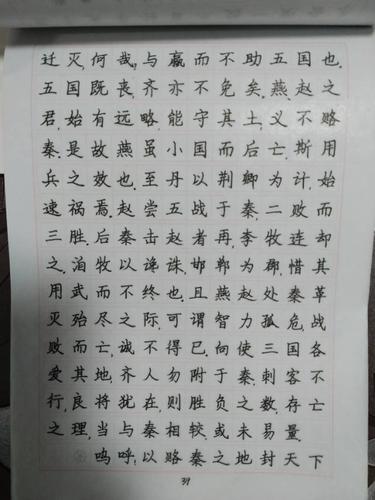 迁灭,何哉,与嬴而不助五国也.
五国既丧,齐亦不免矣.燕赵之
君,始有远略,能守其土,义不略
秦.是故燕虽小国而后亡,斯用
兵之效也.至丹以荆卿为计,始
速祸焉.赵尝五战于秦,二败而
三胜.后秦击赵者再,李牧连却
之.洎牧以谗诛,邯郸为郡,惜其
用武而不终也.且燕赵处秦革
灭殆尽之际,可谓智力孤危,战
败而亡,诚不得已.向使三国各
爱其地,齐人勿附于秦,刺客不
行,良将犹在,则胜负之数,存亡
之理,当与秦相较,或未易量.
呜呼,以略秦之地封天下
39